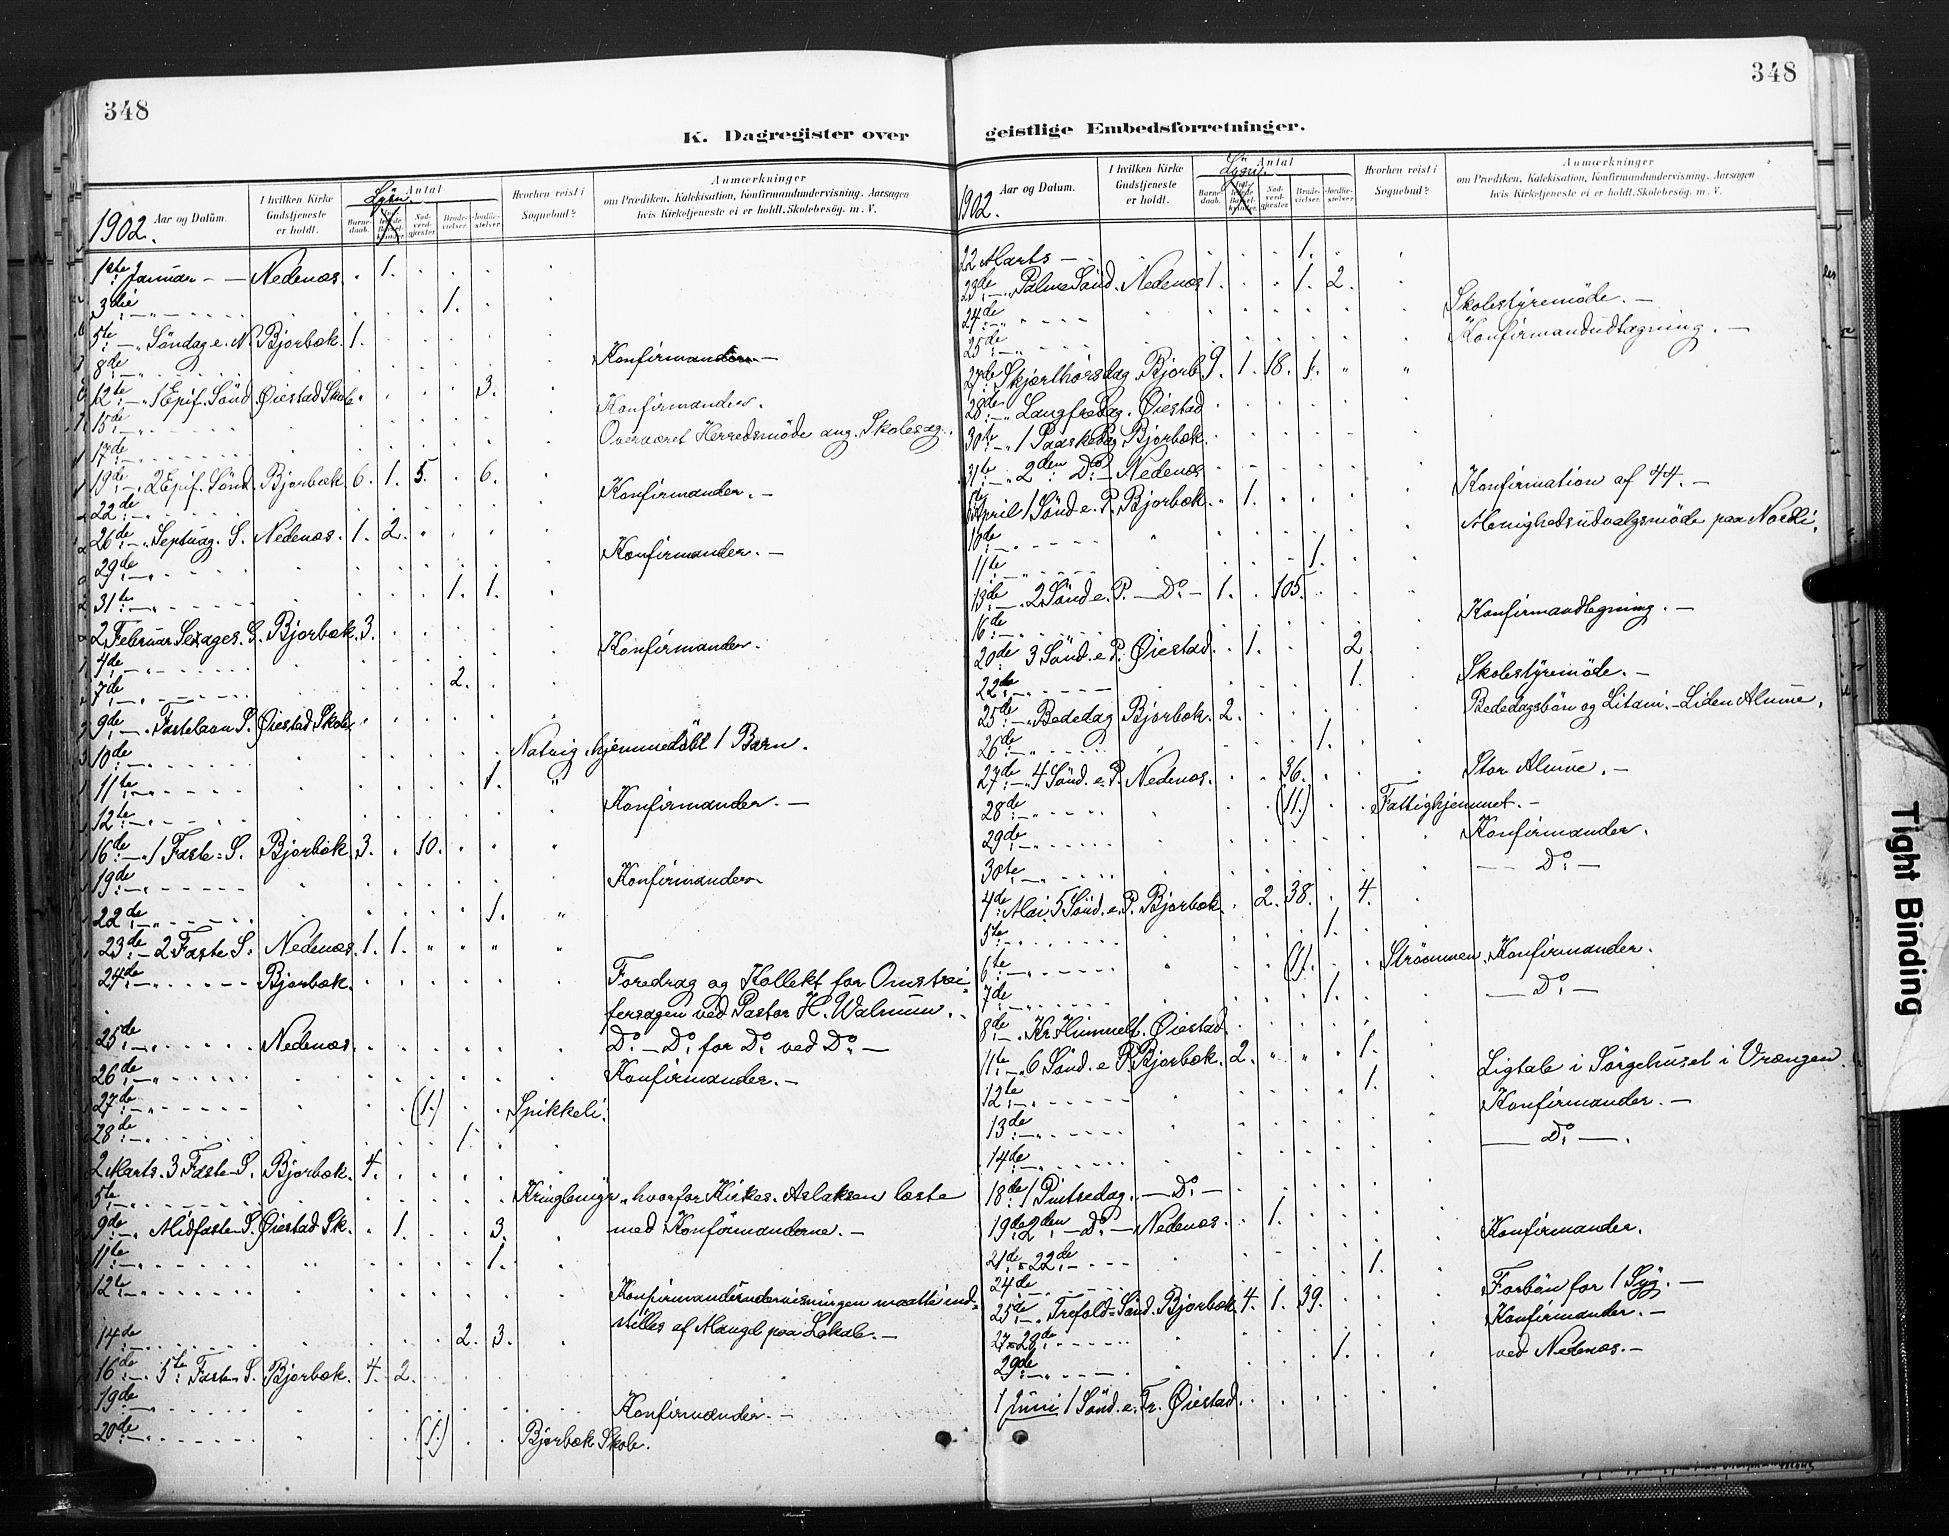 348
K. Dagregister over
1902. Aar og Datum. I hvilken Kirke Gudstjeneste er holdt. Antal Barnedaab. Lysn. Nadverdgjester Brudevielser. Jordfæstelser. Hvorhen reist i Sognebud? Anmærkninger om Prædiken, Katekisation, Konfirmandundervisning, Aarsagen hvis Kirketjeneste ei er holdt. Skolebesøg. m. V.
1ste Januar — Nedenæs. 1.
3die " 1.
5te — " Søndag e. N. Bjorbæk. 1.
8de Konfirmander —
12te — " 1 Epif. Sönd. Øiestad Skole 3.
15de — " Konfirmander.
17de Overværet Herredsmöde ang. Skolesag.
19de — " 2 Epif. Sönd. Bjorbæk 6. 1. 5. 6.
22de — " Konfirmander. —
26de — " Septuag. S. Nedenæs. 1. 2.
29de — " Konfirmander. —
31te — " 1. 1.
2 Februar Sexages. S. Bjorbæk. 3.
4de — " Konfirmander.
7de — " 2.
9de — " Fastelavn S. Øiestad Skole
10de — " Natvig, hjemmedöbt 1 Barn.
11te — " 1. "
12te — " Konfirmander. —
16de — " 1 Faste-S. Bjorbæk 3. 10.
19de — " Konfirmander
22de — " 1. "
23de — 2 Faste S. Nedenæs. 1. 1.
24de — " Bjorbæk. Foredrag og Kollekt for Omstrei-
fersagen ved Pastor H. Walnum.
25de — " Nedenæs. Do. — Do. for Do. ved Do. —
26de — " Konfirmander. —
27de — " (1.) Spikkeli.
28de — " 1.
2 Marts. 3 Faste-S. Bjorbæk. 4.
5te — " Kringlemyr, hvorfor Kirkes. Aslaksen læste
9de — " Midfaste-S. Øiestad Sk. 1. 3. med Konfirmanderne. —
11te — " 1.
12te — " Konfirmandundervisningen maatte ind-
stilles af Mangel paa Lokale. —
14de — " 2. 3.
16de — " 5te Faste S. Bjorbæk. 4. 2.
19de — " Konfirmander. —
20de — " (1.) Bjorbæk Skole.
348
geistlige Embedsforretninger.
1902. Aar og Datum. I hvilken Kirke Gudstjeneste er holdt. Antal Barnedaab. Lysn. Nadverdgjester Brudevielser. Jordfæstelser. Hvorhen reist i Sognebud? Anmærkninger om Prædiken, Katekisation, Konfirmandundervisning, Aarsagen hvis Kirketjeneste ei er holdt. Skolebesøg. m. V.
22 Marts — 1.
23de — " Palme Sönd. Nedenæs 1. 1. 2.
24de — " Skolestyremöde. —
25de — " Konfirmandudtagning. —
27de Skjærthorsdag Bjorb. 9. 1. 18. 1. " "
28de — " Langfredag. Øiestad
30te — " 1 Paaskedag Bjorbæk.
31te — " 2den Do. — Nedenæs
April 1 Sönd e. P. Bjorbæk. 1. Konfirmation af 44. —
10de — " Menighedsudvalgsmöde paa Nordli.
11te — " 1.
13de — " 2 Sönd e. P. — Do. — 1. 105.
16de — " Konfirmandtegning. —
20de 3 Sönd. e. P. Øiestad. 1. 2.
22de — " 1. Skolestyremöde. —
25de — " Bededag Bjorbæk. 2. Bededagsbön og Litani. — Liden Almue.
26de — " 1.
27de — " 4 Sönd. e. P. Nedenæs. 36. Stor Almue. —
28de — " (11.) Fattighjemmet. —
29de — " Konfirmander.
30te — " — Do. —
4de Mai. 5 Sönd. e. P. Bjorbæk. 2. 38. 4.
5te — " 1.
6te — " (1). Strömmen. Konfirmander.
7de — " 1. — Do. —
8de — " Kr. Himmelf. Øiestad
11te — " 6 Sönd. e P. Bjorbæk. 2. 1.
12te — " 1. Ligtale i Sörgehuset i Vrængen.
13de — " Konfirmander. —
14de — " — Do. —
18de 1 Pintsedag. — Do. —
19de 2den — Do. — Nedenæs. 1.
21de = 22de — Konfirmander.
24de — 1.
25de — " Trefold-Sönd. Bjorbæk 4. 1. 39. Forbön for 1 Syg. —
27 = 28de Konfirmander. —
29de — 1. ved Nedenæs. —
1 Juni 1 Sönd. e. Tr. Øiestad.
Tight Binding